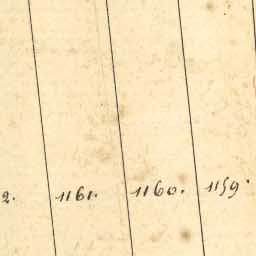 2. 1161. 1160. 1159.